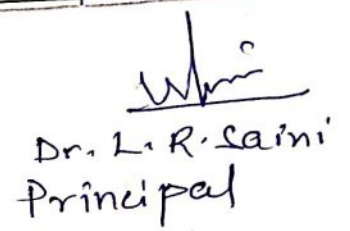 Dr. L. R. Saini
Principal